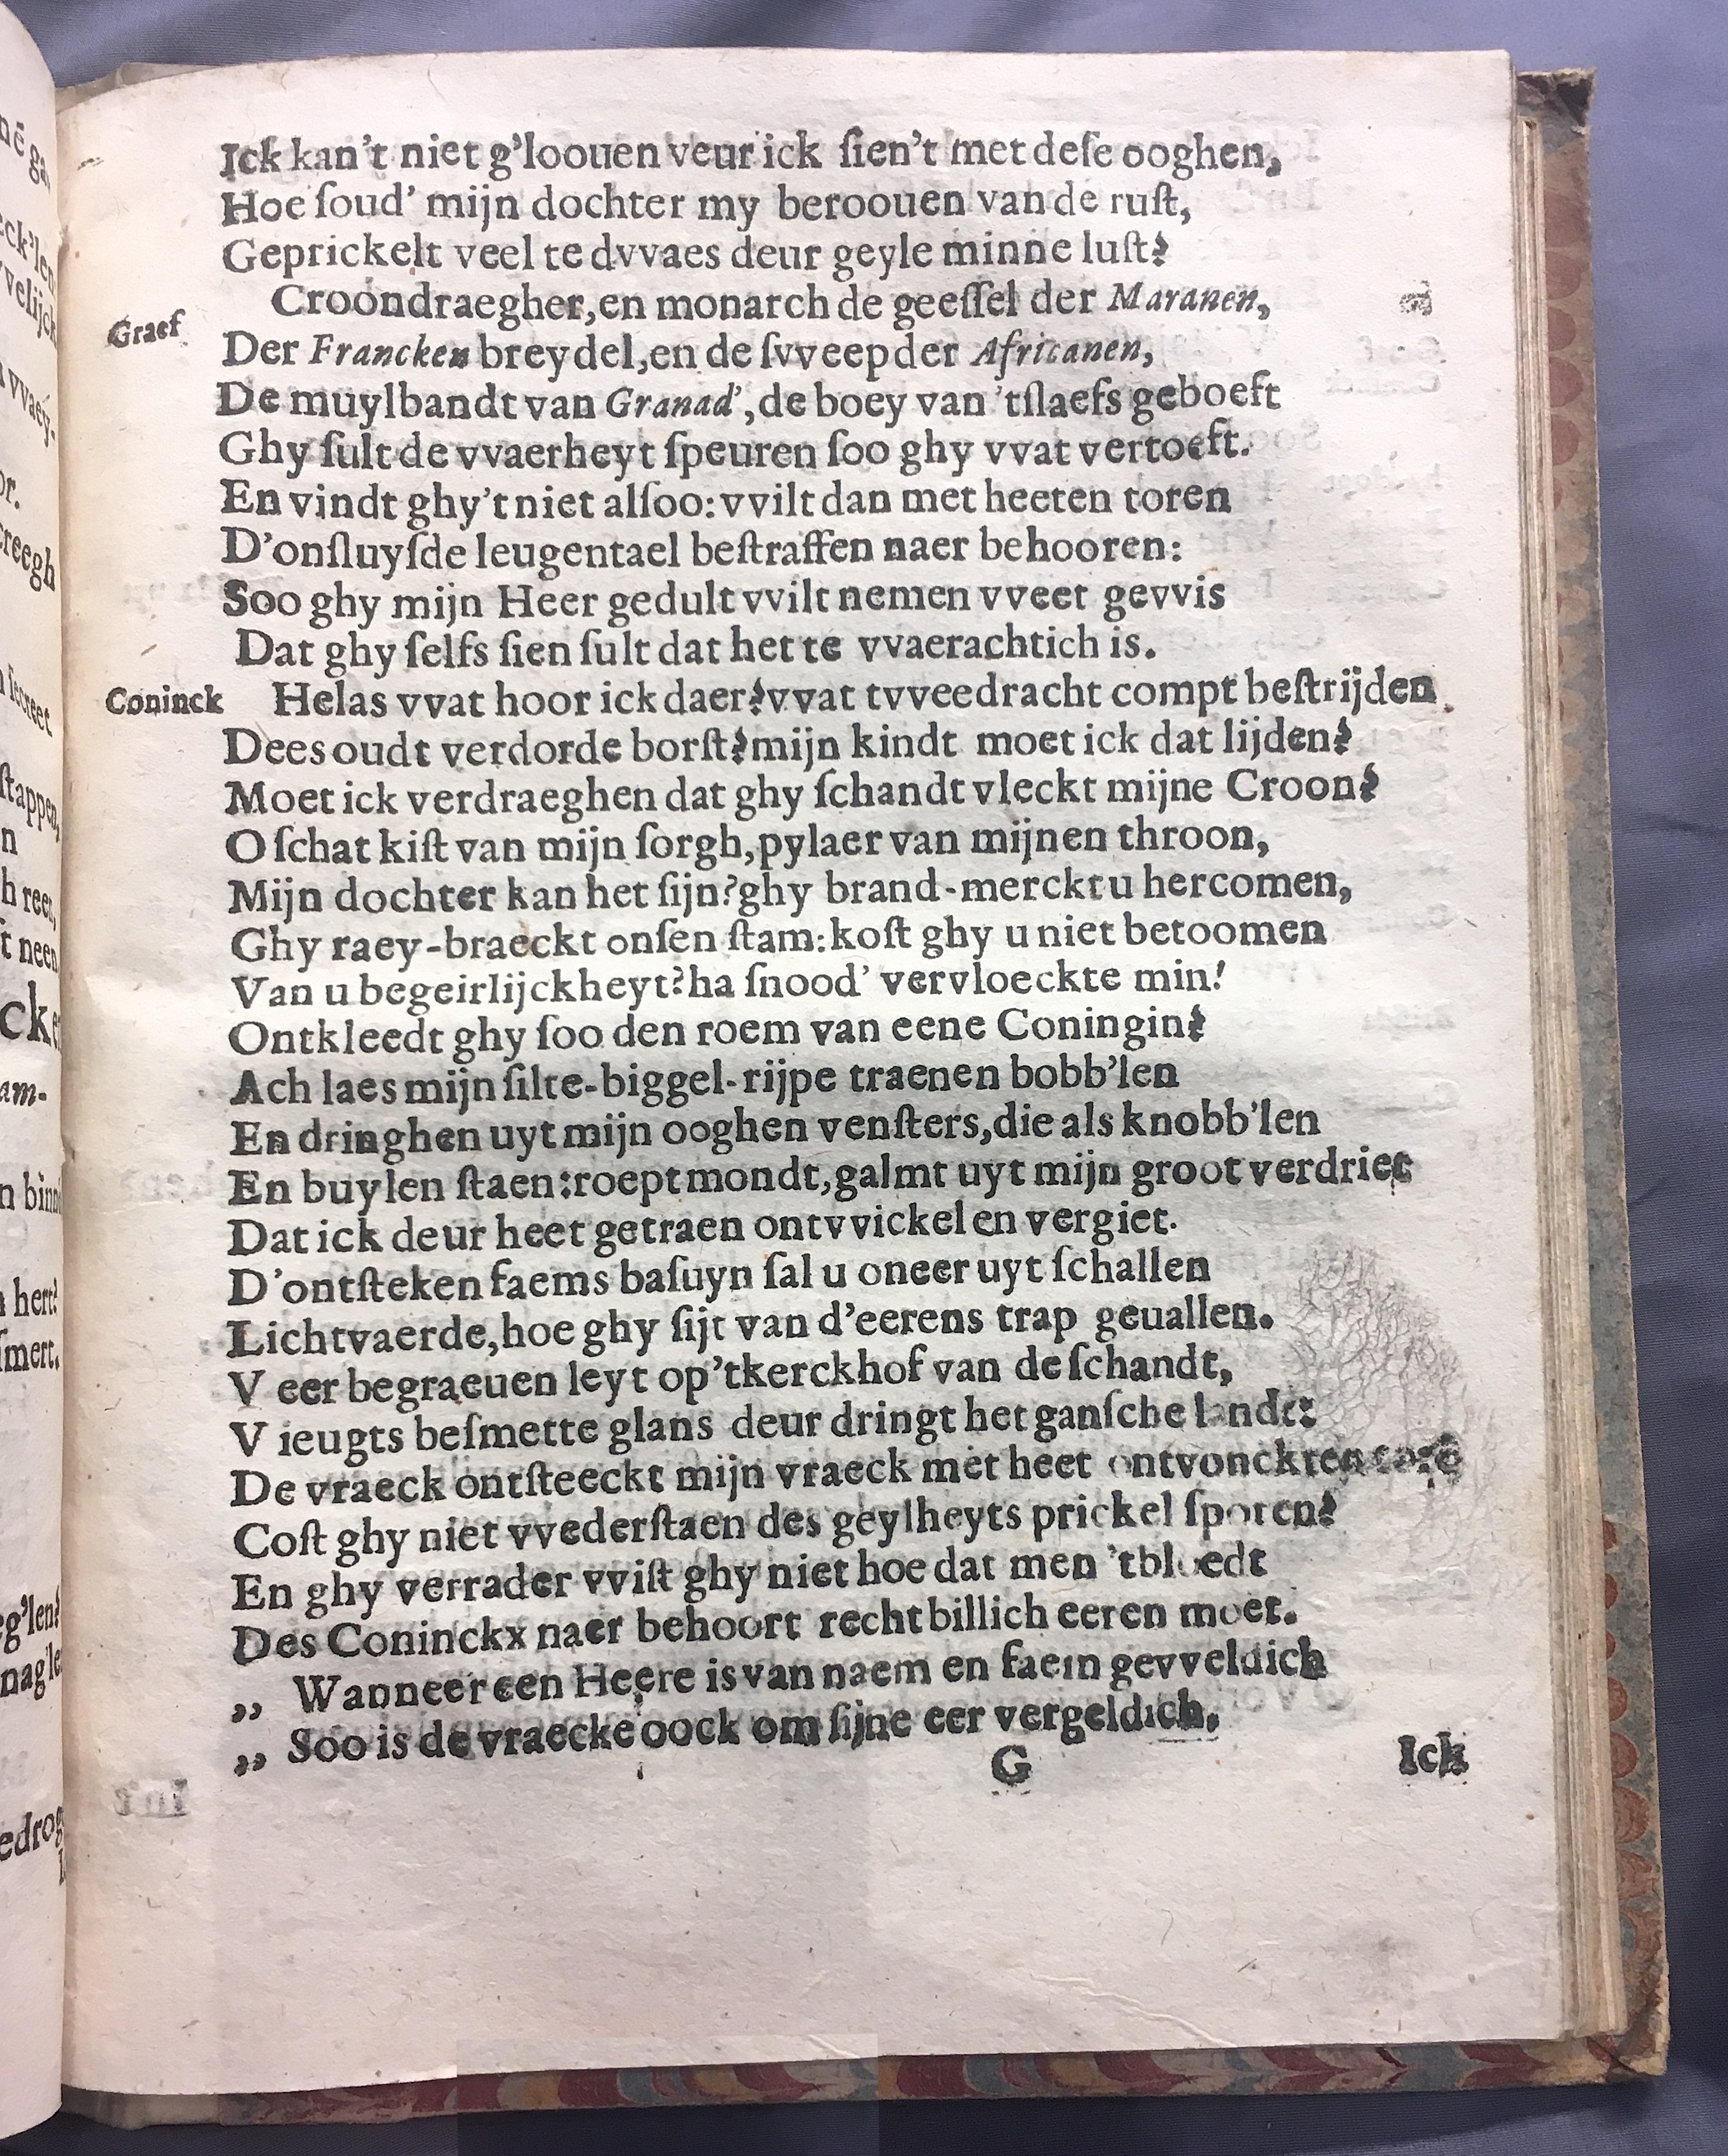 Ick kan't niet g'loouen veur ick ſien't met deſe ooghen,
Hoe ſoud' mijn dochter my beroouen van de ruſt,
Geprickelt veel te dvvaes deur geyle minne luſt?
Graef Croondraegher, en monarch de geeſſel der Maranen,
Der Francken breydel, en de ſvveep der Africanen,
De muylbandt van Granad', de boey van 'tſlaefs geboeft
Ghy ſult de vvaerheyt ſpeuren ſoo ghy vvat vertoeft.
En vindt ghy't niet alſoo: vvilt dan met heeten toren
D'onſluyſde leugentael beſtraffen naer behooren:
Soo ghy mijn Heer gedult vvilt nemen vveet gevvis
Dat ghy ſelfs ſien ſult dat het te vvaerachtich is.
Coninck Helas vvat hoor ick daer? vvat tvveedracht compt beſtrijden
Dees oudt verdorde borſt? mijn kindt moet ick dat lijden?
Moet ick verdraeghen dat ghy ſchandt vleckt mijne Croon?
O ſchat kiſt van mijn ſorgh, pylaer van mijnen throon,
Mijn dochter kan het ſijn? ghy brand-merckt u hercomen,
Ghy raey-braeckt onſen ſtam: koſt ghy u niet betoomen
Van u begeirlijckheyt? ha ſnood' vervloeckte min!
Ontkleedt ghy ſoo den roem van eene Coningin?
Ach laes mijn ſilte-biggel-rijpe traenen bobb'len
En dringhen uyt mijn ooghen venſters, die als knobb'len
En buylen ſtaen: roept mondt, galmt uyt mijn groot verdriet
Dat ick deur heet getraen ontvvickel en vergiet.
D'ontſteken faems baſuyn ſal u oneer uyt ſchallen
Lichtvaerde, hoe ghy ſijt van d'eerens trap geuallen.
V eer begraeuen leyt op 'tkerckhof van de ſchandt,
V ieugts beſmette glans deur dringt het ganſche landt:
De vraeck ontſteeckt mijn vraeck met heet ontvonckten torē
Coſt ghy niet vvederſtaen des geylheyts prickel ſporen?
En ghy verrader vviſt ghy niet hoe dat men 'tbloedt
Des Coninckx naer behoort recht billich eeren moet.
,, Wanneer een Heere is van naem en faem gevveldich
,, Soo is de vraecke oock om ſijne eer vergeldich.
G Ick